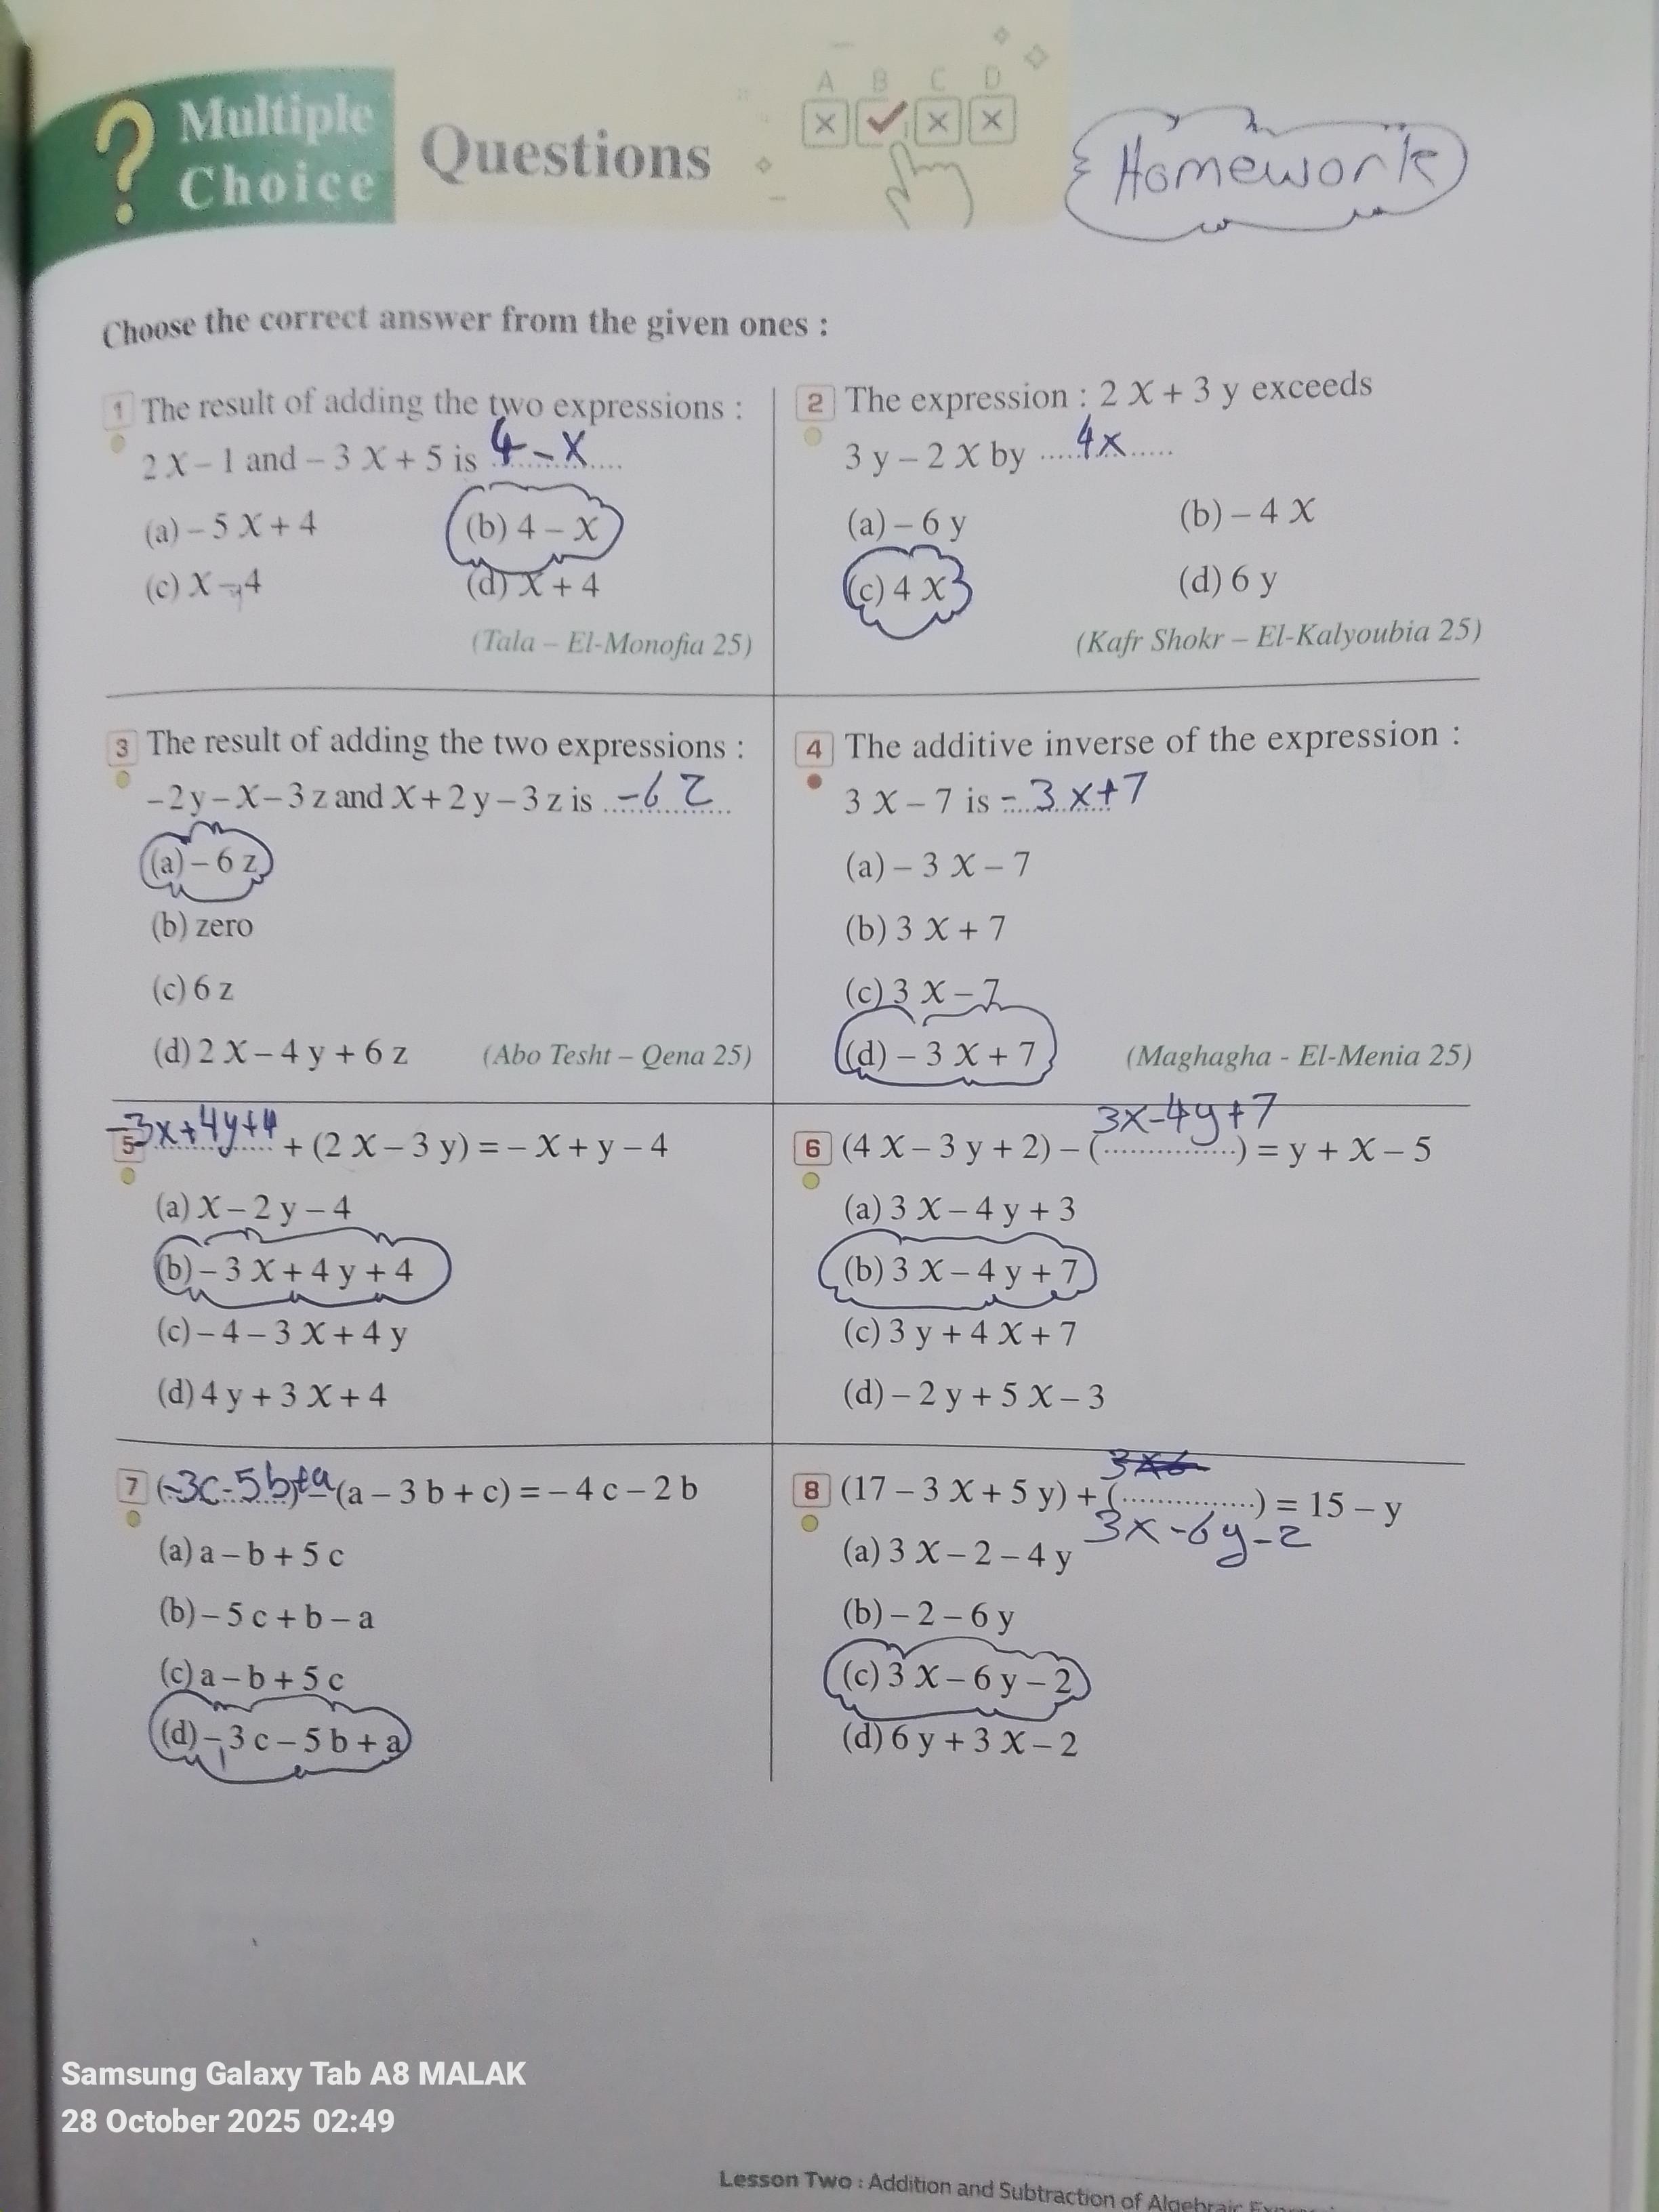 Multiple
Choice
Questions
A B C D
Homework
Choose the correct answer from the given ones :
1 The result of adding the two expressions :
2 X – 1 and – 3 X + 5 is 4 – X
(a) – 5 X + 4 (b) 4 – X
(c) X – 4 (d) X + 4
(Tala – El-Monofia 25)
2 The expression : 2 X + 3 y exceeds
3 y – 2 X by ..... 4x .....
(a) – 6 y (b) – 4 X
(c) 4 X (d) 6 y
(Kafr Shokr – El-Kalyoubia 25)
3 The result of adding the two expressions :
–2y – X – 3 z and X + 2 y – 3 z is -6 z
(a) – 6 z
(b) zero
(c) 6 z
(d) 2 X – 4 y + 6 z (Abo Tesht – Qena 25)
4 The additive inverse of the expression :
3 X – 7 is - 3 x+7
(a) – 3 X – 7
(b) 3 X + 7
(c) 3 X – 7
(d) – 3 X + 7 (Maghagha - El-Menia 25)
-3x+4y+4
5 ............ + (2 X – 3 y) = – X + y – 4
(a) X – 2 y – 4
(b) – 3 X + 4 y + 4
(c) – 4 – 3 X + 4 y
(d) 4 y + 3 X + 4
3x-4y+7
6 (4 X – 3 y + 2) – (...............) = y + X – 5
(a) 3 X – 4 y + 3
(b) 3 X – 4 y + 7
(c) 3 y + 4 X + 7
(d) – 2 y + 5 X – 3
7 (-3c-5b+a) – (a – 3 b + c) = – 4 c – 2 b
(a) a – b + 5 c
(b) – 5 c + b – a
(c) a – b + 5 c
(d) – 3 c – 5 b + a
8 (17 – 3 X + 5 y) + (...............) = 15 – y
3x-6y-2
(a) 3 X – 2 – 4 y
(b) – 2 – 6 y
(c) 3 X – 6 y – 2
(d) 6 y + 3 X – 2
Samsung Galaxy Tab A8 MALAK
28 October 2025 02:49
Lesson Two : Addition and Subtraction of Algebraic